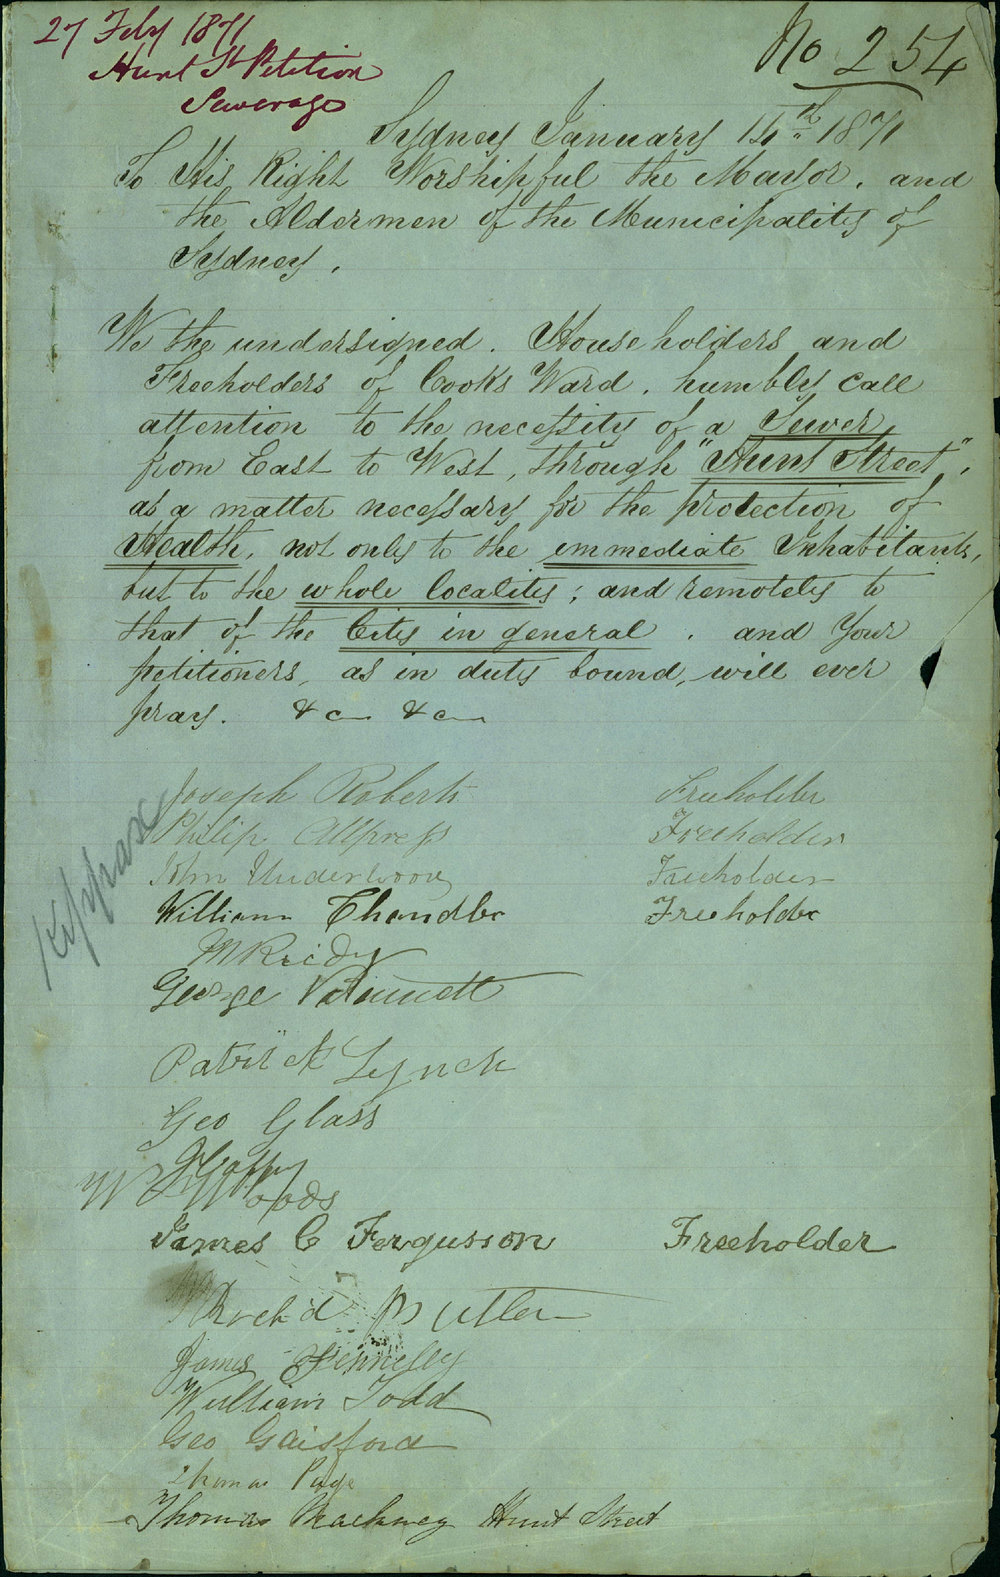 27 Feby 1871
Hunt St Petition
Sewerage
No 254
Sydney January 14th 1871
To His Right Worshipful the Mayor, and
the Aldermen of the Municipality of
Sydney.
We the undersigned. Householders and
Freeholders of Cooks Ward, humbly call
attention to the necessity of a Sewer
from East to West, through "Hunt Street",
as a matter necessary for the protection of
Health, not only to the immediate Inhabitants,
but to the whole locality; and remotely to
that of the City in general. and Your
petitioners, as in duty bound, will ever
pray. &c &c
Joseph Roberts Freeholder
Philip Allpress Freeholder
John Underwood Freeholder
Kippax
William Chandler Freeholder
George
Patrick Lynch
Geo Glass
W Woods
James C Fergusson Freeholder
Butler
James Fennelly
William Todd
Geo Gaisford
Thomas Page
Thomas Mackney Hunt Street